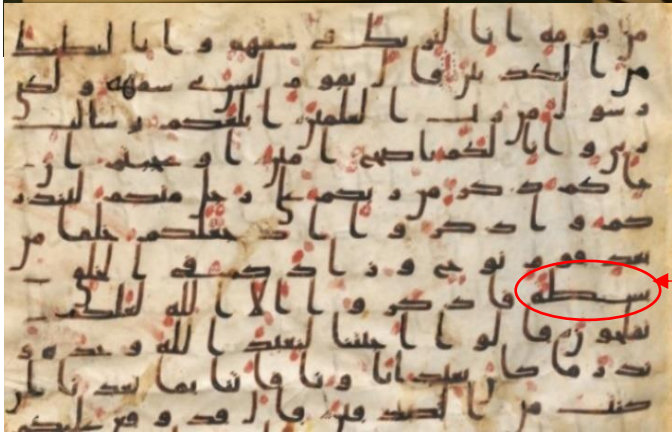 من قومه انا لنريك في سفهه و انا لنظنك
من الكذبين قال يقوم ليس بي سفهه ولكني
رسول من رب العلمين ابلغكم رسالت
ربي و انا لكم ناصح امين او عجبتم ان
جاكم ذكر من ربكم على رجل منكم لينذر
كم و اذكروا اذ جعلكم خلفا من
بعد قوم نوح و زادكم في الخلق
بسطه فاذكروا الا الله لعلكم
تفلحون قالوا اجئتنا لنعبد الله وحده و
نذر ما كان يعبد اباونا فاتنا بما تعدنا ان
كنت من الصدقين قال قد وقع عليكم